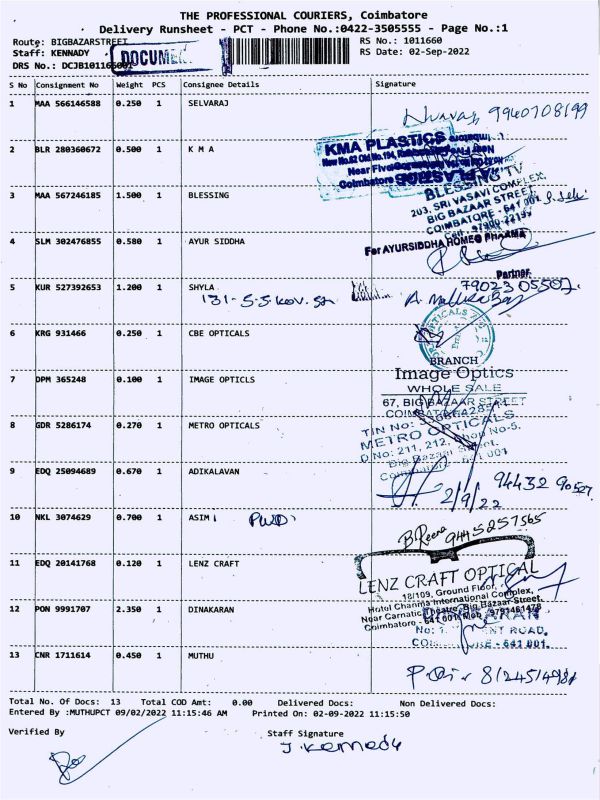 THE PROFESSIONAL COURIERS, Coimbatore
Delivery Runsheet - PCT - Phone No.:0422-3505555 - Page No.:1
Route: BIGBAZARSTREET
RS No.: 1011660
Staff: KENNADY
DOCUMENT
RS Date: 02-Sep-2022
DRS No.: DCJB101166
S No Consignment No Weight PCS Consignee Details Signature
1 MAA 566146588 0.250 1 SELVARAJ
9940708199
2 BLR 280360672 0.500 1 K M A
KMA PLASTICS
Near Five
Coimbatore
3 MAA 567246185 1.500 1 BLESSING
BLESSING TV
203, SRI VASAVI COMPLEX,
BIG BAZAAR STREET
COIMBATORE - 641 001
4 SLM 302476855 0.580 1 AYUR SIDDHA
For AYURSIDDHA HOMEO PHARMA
Partner
5 KUR 527392653 1.200 1 SHYLA
131-S-S
7902305507
6 KRG 931466 0.250 1 CBE OPTICALS
OPTICALS
BRANCH
7 DPM 365248 0.100 1 IMAGE OPTICLS
Image Optics
WHOLE SALE
67, BIG BAZAAR STREET
8 GDR 5286174 0.270 1 METRO OPTICALS
TIN No:
METRO OPTICALS
D.No: 211, 212, Shop No-5.
Big Bazaar Street,
Coimbatore - 641 001
9 EDQ 25094689 0.670 1 ADIKALAVAN
2/9/22
94432 90527
10 NKL 3074629 0.700 1 ASIM
B. Reena 9445257565
11 EDQ 20141768 0.120 1 LENZ CRAFT
LENZ CRAFT OPTICAL
18/109, Ground Floor,
Hotel Channma International Complex,
Near Carnatic Theatre, Big Bazaar Street,
Coimbatore - 641 001 Mob : 9791461478
12 PON 9991707 2.350 1 DINAKARAN
ROAD,
- 641 001.
13 CNR 1711614 0.450 1 MUTHU
Total No. Of Docs: 13 Total COD Amt: 0.00 Delivered Docs: Non Delivered Docs:
Entered By :MUTHUPCT 09/02/2022 11:15:46 AM Printed On: 02-09-2022 11:15:50
Verified By
Staff Signature
J. Kennady